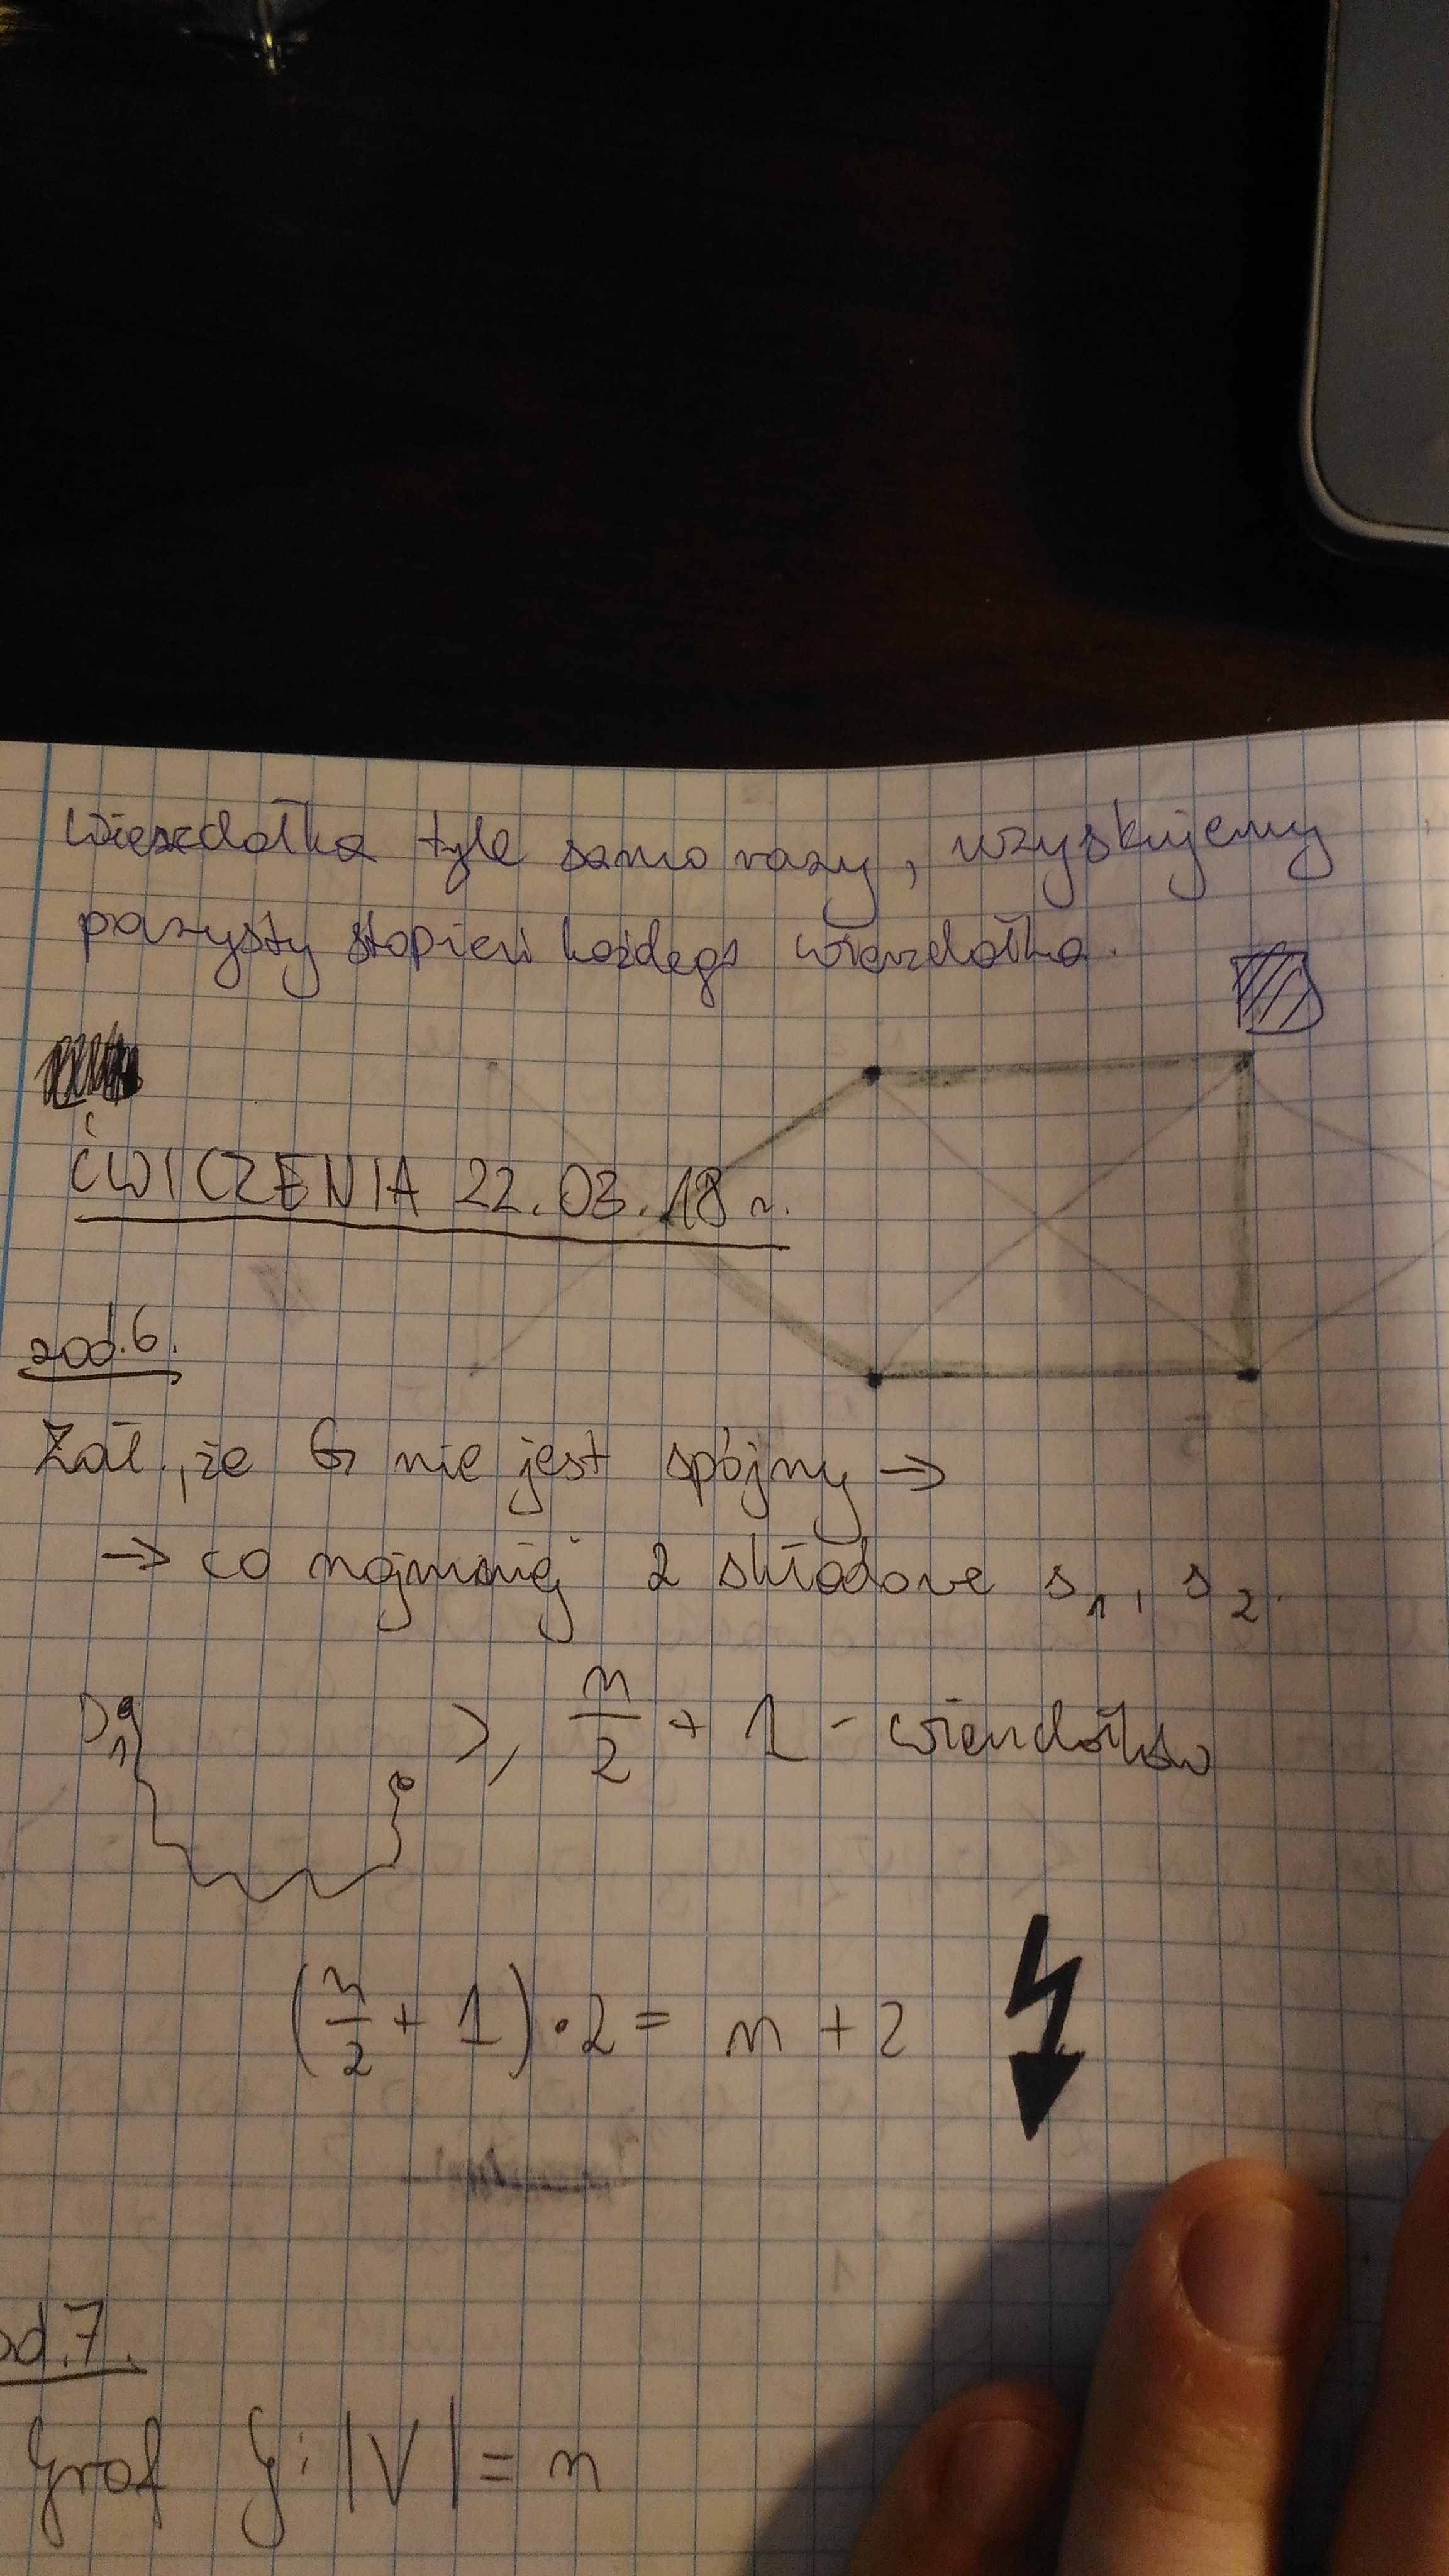 wierzchołka tyle samo razy, uzyskujemy
parzysty stopień każdego wierzchołka.
ĆWICZENIA 22.03.18 r.
zad.6.
Zał., że G nie jest spójny →
→ co najmniej 2 składowe s₁, s₂.
s₁ ≥ n/2 + 1 - wierzchołków
(n/2 + 1) · 2 = n + 2
ad.7.
Graf G: |V| = n